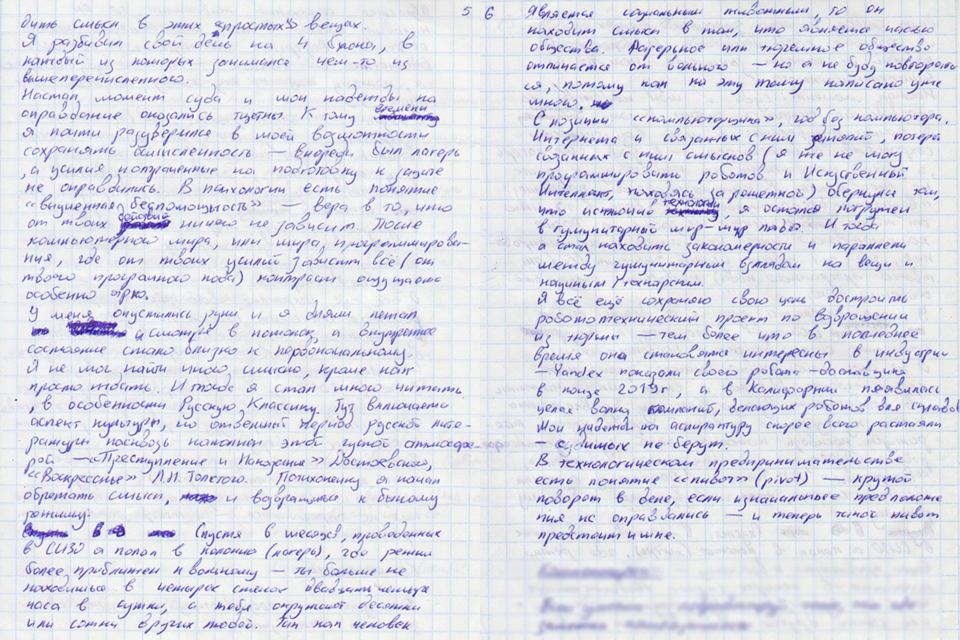 дить смысл в этих "простых" вещах.
Я разбивал свой день на 4 блока, в
каждый из которых занимался чем-то из
вышеперечисленного.
Настал момент суда и мои надежды на
оправдание оказались тщетны. К тому времени
я почти разуверился в моей возможности
сохранять осмысленность — впереди был лагерь
, а усилия потраченные на подготовку к защите
не оправдались. В психологии есть понятие
«выученная беспомощность» — вера в то, что
от твоих действий ничего не зависит. После
компьютерного мира, или мира, программирова-
ния, где от твоих усилий зависит всё (от
твоего програмного кода) контраст ощущается
особенно ярко.
У меня опустились руки и я днями лежал
и смотрел в потолок, а внутреннее
состояние стало близко к первоначальному.
Я не мог найти иного смысла, кроме как
просто ждать. И тогда я стал много читать
, в особенности Русскую Классику. Тут включается
аспект культуры, но отдельный период русской лите-
ратуры насквозь наполнен этой густой атмосфе-
рой — «Преступление и Наказание» Достоевского,
«Воскресенье» Л.Н. Толстого. Потихоньку я начал
обретать смысл, и возвращаться к былому
режиму.
Спустя 8 месяцев, проведенных
в СИЗО я попал в колонию (лагерь), где режим
более приближен к вольному — ты больше не
находишься в четырех стенах двадцать четыре
часа в сутки, а тебя окружают десятки
или сотни других людей. Так как человек
5
6
Является социальным животным, то он
находит смысл в том, что является частью
общества. Лагерное или тюремное общество
отличается от вольного — но я не буду повторять
ся, потому как на эту тему написано уже
много.
С позиции «компьютерщика», где без компьютера,
Интернета и связанных с ним занятий, потеря
связанных с ними смыслов (я же не могу
программировать роботов и Искуственный
Интеллект, находясь за решеткой) обернулась тем,
что источник технологий, я остался погружен
в гуманитарный мир — мир людей. И тогда
я стал находить закономерности и параллели
между гуманитарным взглядом на вещи и
научным/технарским.
Я всё ещё сохраняю свою цель достроить
робототехнический проект по возвращении
из тюрьмы — тем более что в последнее
время она становятся интересны в индустрии
— Yandex показали своего робота-доставщика
в конце 2019г, а в Калифорнии появилась
целая волна компаний, делающих роботов для складов
Мои надежды на аспирантуру скорее всего растаяли
— судимых не берут.
В технологическом предпринимательстве
есть понятие «пивот» (pivot) — крутой
поворот в деле, если изначальные предположе
ния не оправдались — и теперь такой пивот
предстоит и мне.